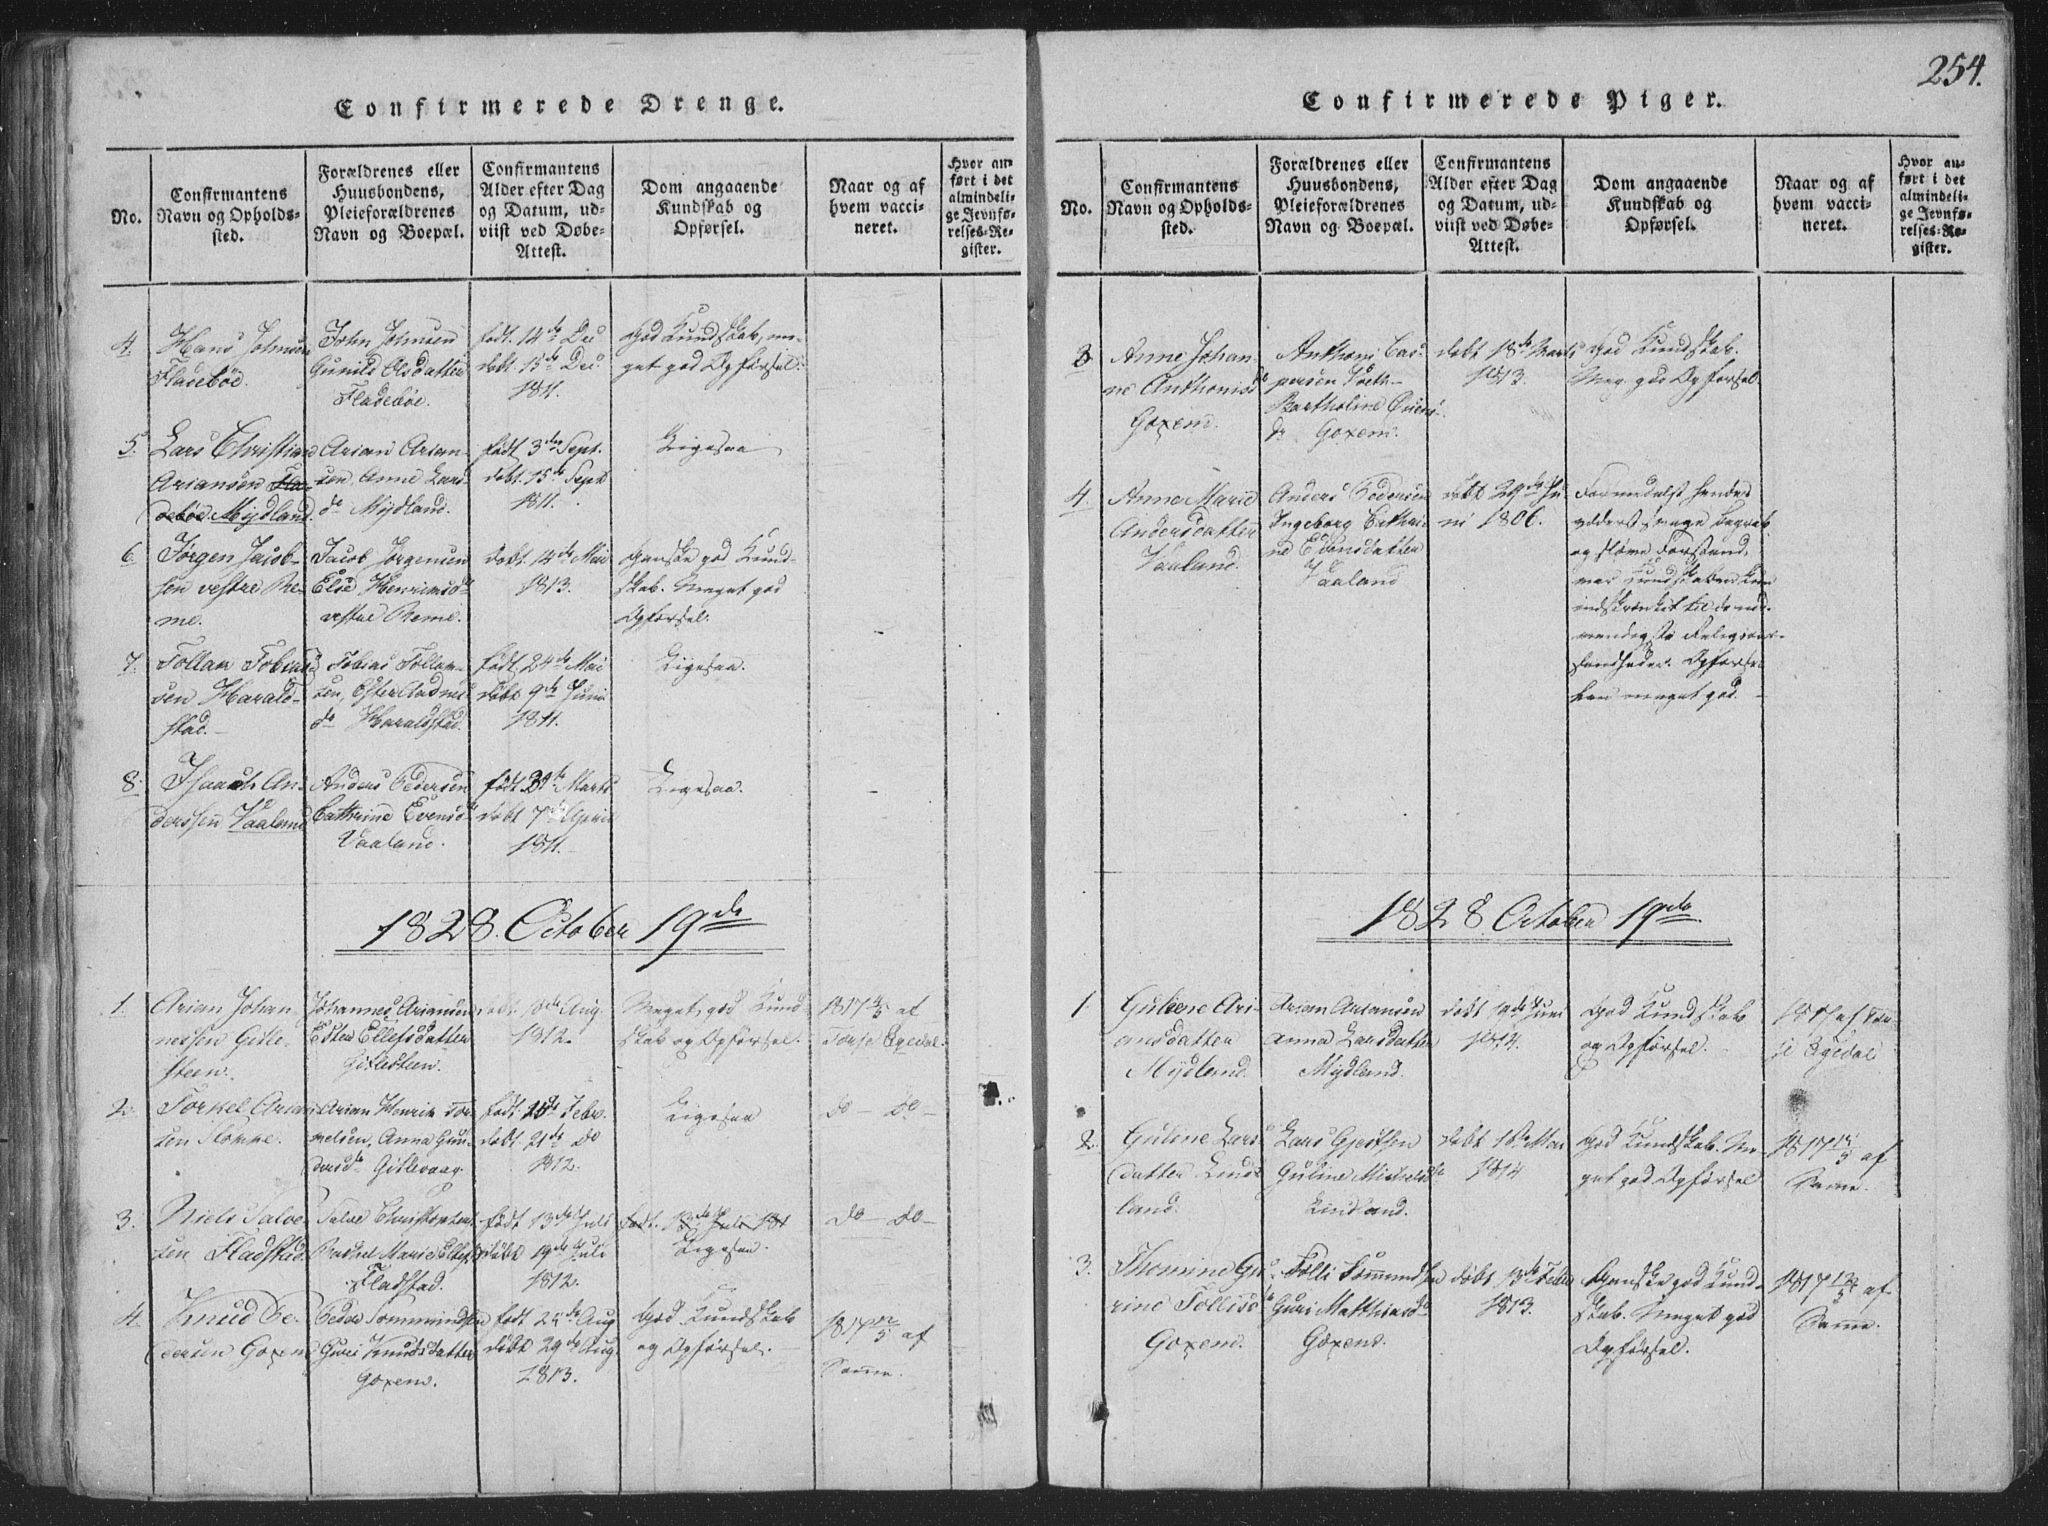 254.
Confirmerede Drenge.
No.
Confirmantens
Navn og Opholds-
sted.
Forældrenes eller
Huusbondens,
Pleieforældrenes
Navn og Boepæl.
Confirmantens
Alder efter Dag
og Datum, ud-
viist ved Døbe-
Attest.
Dom angaaende
Kundskab og
Opførsel.
Naar og af
hvem vacci-
neret.
Hvor an-
ført i det
almindeli-
ge Jevnfø-
relses-Re-
gister.
4.
Hans Johnsen
Fladebøe.
John Johnsen
Gunild Olsdatter
Fladebøe.
født 14de Dec
døbt 15de Dec
1811.
God Kundskab, me-
get god Opførsel.
5.
Lars Christian
Ariansen Fla-
debøe. Mydland.
Arian Arian-
sen Anne Lars-
dr Mydland.
født 3den Sept.
døbt 15de Sept
1811.
Ligesaa
6.
Jørgen Jacob-
sen vestre Re-
me.
Jacob Jørgensen
Else Henriksdr
vestre Reme.
døbt 14de Mai
1813.
Ganske god Kund-
skab. Meget god
Opførsel.
7.
Tollan Tobias-
sen Harald-
stad.
Tobias Tollan-
sen, Ester
dr Haraldstad.
født 24de Mai
døbt 9de Juni
1811.
Ligesaa.
8.
Isaach An-
derssen Vaaland
Anders Pedersen
Cathrine Evensdr
Vaaland.
født 31te Marts
døbt 7de April
1811.
Ligesaa.
1828. October 19de
1.
Arian Johan-
nessen Gitle-
steen.
Johannes Ariansen
Ester Ellefsdatter
Gitlesteen.
døbt Aug.
1812.
Meget god Kund-
skab og Opførsel.
1817 af
Tørje Egedal.
2.
Torkel Arian-
sen Flokke.
Arian Henrik Tor-
kelsen, Anna Gun-
dersdr Gitlevaag.
født Febr.
døbt 21de do
1812.
Ligesaa
do — do —
3.
Niels Salve-
sen Fladstad
Salve Christophers
Rachel Marie Ellefs
Fladstad.
født 13de Juli
døbt 19de Juli
1812.
født 13de Juli 181
Ligesaa.
do — do —
4.
Knud Pe-
dersen Goxem
Peder Tommundsen
Guri Knudsdatter
Goxem.
født 24de Aug
døbt 29de Aug.
1813.
God Kundskab
og Opførsel.
1817 af
Samme.
Confirmerede Piger.
No.
Confirmantens
Navn og Opholds-
sted.
Forældrenes eller
Huusbondens,
Pleieforældrenes
Navn og Boepæl.
Confirmantens
Alder efter Dag
og Datum, ud-
viist ved Døbe-
Attest.
Dom angaaende
Kundskab og
Opførsel.
Naar og af
hvem vacci-
neret.
Hvor an-
ført i det
almindeli-
ge Jevnfø-
relses-Re-
gister.
3
Anne Johan-
ne Anthonisdr
Goxem.
Anthoni Cas-
persen
Bartholine
dr Goxem.
døbt 18de Marts
1813.
God Kundskab.
Meg. god Opførsel.
4.
Anne Marie
Andersdatter
Vaaland.
Anders Pedersen
Ingeborg Cathri-
ne Evensdatter
Vaaland
døbt 29de Ju-
ni 1806.
Formedelst hendes
yderst svage Begreb
og sløve Forstand,
var Kundskaben kun
indskrænket til de nød-
vendigste Religions-
sandheder. Opførse-
len meget god.
1828. October 19de
1.
Guliene Ari-
ansdatter
Mydland.
Arian Ariansen
Anna Larsdatter
Mydland.
døbt Juni
1814.
God Kundskab
og Opførsel.
af Tør-
je Egedal
2.
Guline Lars-
datter Linds-
land.
Lars Gjertsen
Guline Michelsdr
Lindsland.
døbt Mai
1814
God Kundskab. Me-
get god Opførsel
1817 af
Samme.
3.
Thomine Gu-
rine Tollisdr
Goxem.
Tolli Tommundsen
Guri Matthiasdr
Goxem.
døbt 13de Febr
1813.
Ganske god Kund-
skab. Meget god
Opførsel.
1817 af
Samme.